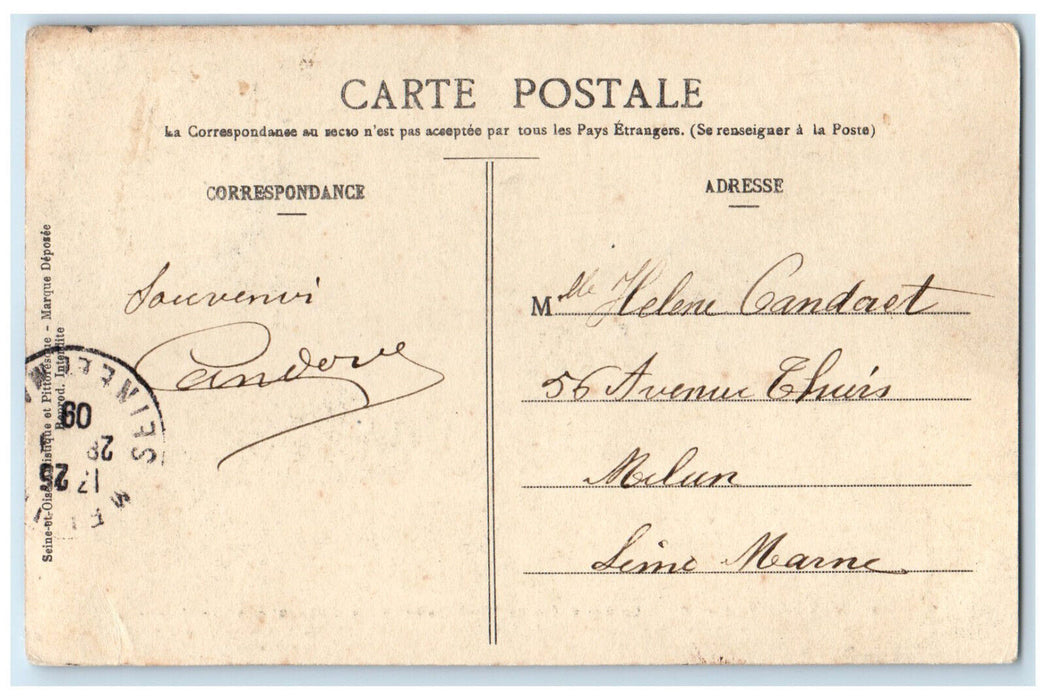 CARTE POSTALE
La Correspondance au recto n'est pas acceptée par tous les Pays Étrangers. (Se renseigner à la Poste)
CORRESPONDANCE
Souvenir
ADRESSE
Mlle Helene Candaet
56 Avenue Thiers
Melun
Seine Marne
Seine-et-Oise Artistique et Pittoresque - Marque Déposée
Reprod. Interdite
SEINE ET M
17 25
28
09